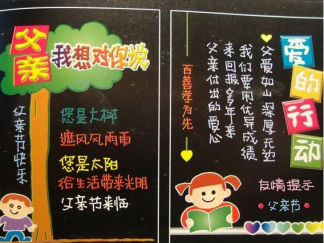 父亲
我想对你说
父亲节快乐
您是大树
遮风风雨雨
您是太阳
给生活带来光明
父亲节来临
爱的行动
父爱如山深厚无边
我们要用优异成绩
来回报多年来
父亲付出的爱心
百善孝为先
友情提示
父亲节